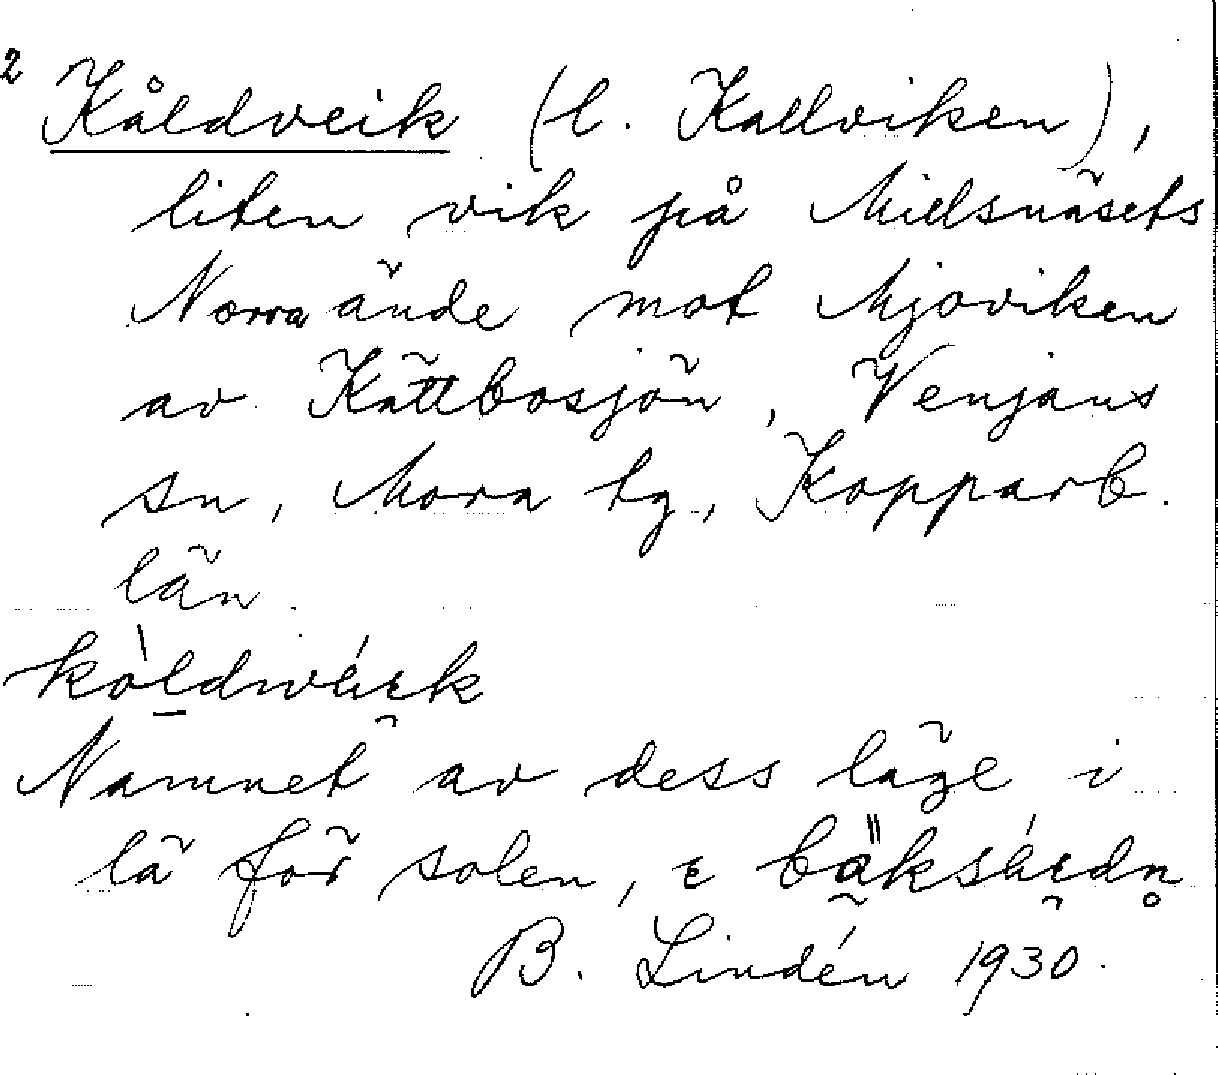 2 Kåldveik (l. Kallviken),
liten vik på Mielsnäsets
Norra ände mot Mjoviken
av Kättbosjön, Venjans
sn, Mora tg, Kopparb.
län.
Namnet av dess läge i
lä för solen,
B. Lindén 1930.